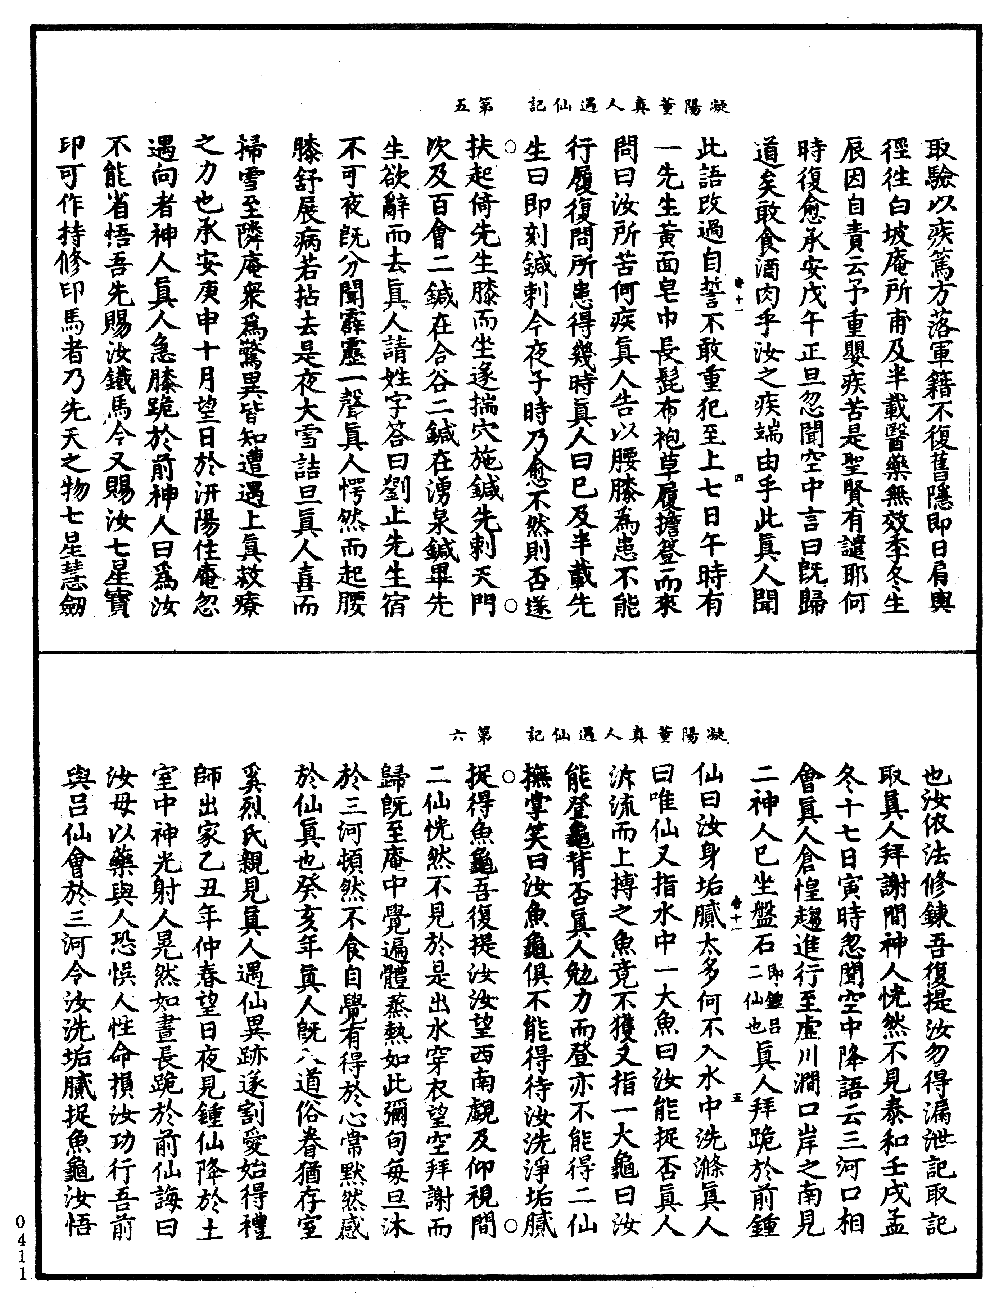 凝陽董真人遇仙記　第五
取驗以疾篤方落軍籍不復舊隱即日肩輿
徑往白坡庵所甫及半載醫藥無效季冬生
辰因自責云予重嬰疾苦是聖賢有譴耶何
時復愈承安戊午正旦忽聞空中言曰旣歸
道矣敢食酒肉乎汝之疾端由乎此真人聞
此語改過自誓不敢重犯至上七日午時有
一先生黃面皂巾長髭布袍草履擔簦而來
問曰汝所苦何疾真人告以腰膝為患不能
行履復問所患得幾時真人曰已及半載先
生曰即刻鍼刺今夜子時乃愈不然則否遂
扶起倚先生膝而坐遂揣穴施鍼先刺天門
次及百會二鍼在合谷二鍼在湧泉鍼畢先
生欲辭而去真人請姓字荅曰劉止先生宿
不可夜旣分聞霹靂一聲真人愕然而起腰
膝舒展病若拈去是夜大雪詰旦真人喜而
掃雪至隣庵衆為驚異皆知遭遇上真救療
之力也承安庚申十月望日於汧陽住庵忽
遇向者神人真人急膝跪於前神人曰為汝
不能省悟吾先賜汝鐵馬今又賜汝七星寶
印可作持修印馬者乃先天之物七星慧劒
卷十一　四
凝陽董真人遇仙記　第六
也汝依法修鍊吾復提汝勿得漏泄記取記
取真人拜謝間神人恍然不見泰和壬戌孟
冬十七日寅時忽聞空中降語云三河口相
會真人倉惶趨進行至虛川澗口岸之南見
二神人已坐盤石二仙也即鍾呂真人拜跪於前鍾
仙曰汝身垢膩太多何不入水中洗滌真人
曰唯仙又指水中一大魚曰汝能捉否真人
泝流而上摶之魚竟不獲又指一大龜曰汝
能登龜背否真人勉力而登亦不能得二仙
撫掌笑曰汝魚龜俱不能得待汝洗淨垢膩
捉得魚龜吾復提汝汝望西南覷及仰視間
二仙恍然不見於是出水穿衣望空拜謝而
歸旣至庵中覺遍體蒸熱如此彌旬每旦沐
於三河頓然不食自覺有得於心常默然感
於仙真也癸亥年真人旣入道俗眷猶存室
奚烈氏親見真人遇仙異跡遂割愛始得禮
師出家乙丑年仲春望日夜見鍾仙降於土
室中神光射人晃然如晝長跪於前仙誨曰
汝毋以藥與人恐悞人性命損汝功行吾前
與呂仙會於三河令汝洗垢膩捉魚龜汝悟
卷十一　五
0411